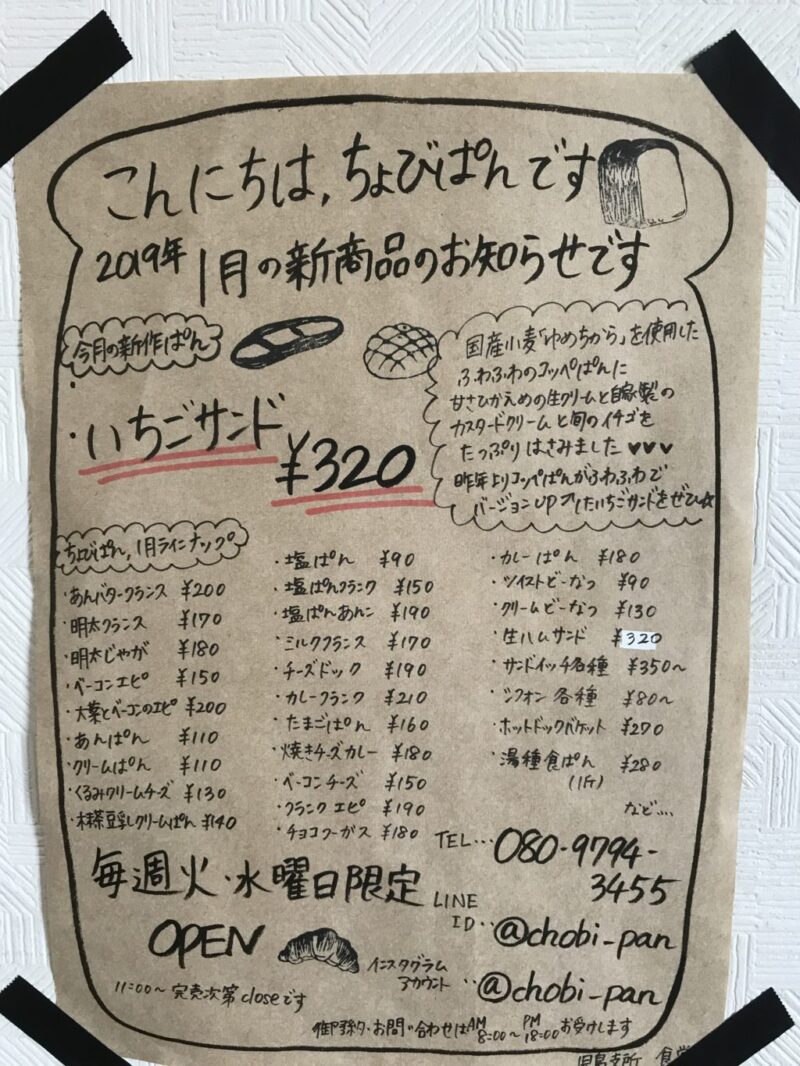 こんにちは,ちょびぱんです
2019年 1月の新商品のお知らせです
今月の新作ぱん
・いちごサンド
¥320
国産小麦「ゆめちから」を使用した
ふわふわのコッペぱんに
甘さひかえめの生クリームと自家製の
カスタードクリームと旬のイチゴを
たっぷりはさみました♥♥♥
昨年よりコッペぱんがふわふわで
バージョンUP↗したいちごサンドをぜひ☆
ちょびぱん,1月ラインナップ
・あんバターフランス ¥200
・明太フランス ¥170
・明太じゃが ¥180
・ベーコンエピ ¥150
・大葉とベーコンのエピ ¥200
・あんぱん ¥110
・クリームぱん ¥110
・くるみクリームチーズ ¥130
・抹茶豆乳クリームぱん ¥140
・塩ぱん ¥90
・塩ぱんフランク ¥150
・塩ぱんあんこ ¥190
・ミルクフランス ¥170
・チーズドック ¥190
・カレーフランク ¥210
・たまごぱん ¥160
・焼きチーズカレー ¥180
・ベーコンチーズ ¥150
・フランクエピ ¥190
・チョコフーガス ¥180
・カレーぱん ¥180
・ツイストどーなつ ¥90
・クリームどーなつ ¥130
・生ハムサンド ¥320
・サンドイッチ各種 ¥350〜
・シフォン各種 ¥80〜
・ホットドックバケット ¥270
・湯種食ぱん ¥280
(1斤)
など....
毎週火・水曜日限定
OPEN
11:00〜完売次第closeです
TEL… 080-9794-
3455
LINE
ID‥ @chobi_pan
インスタグラム
アカウント ‥ @chobi_pan
御予約・お問い合わせはAM8:00〜PM18:00お受けします
児島支所 食堂